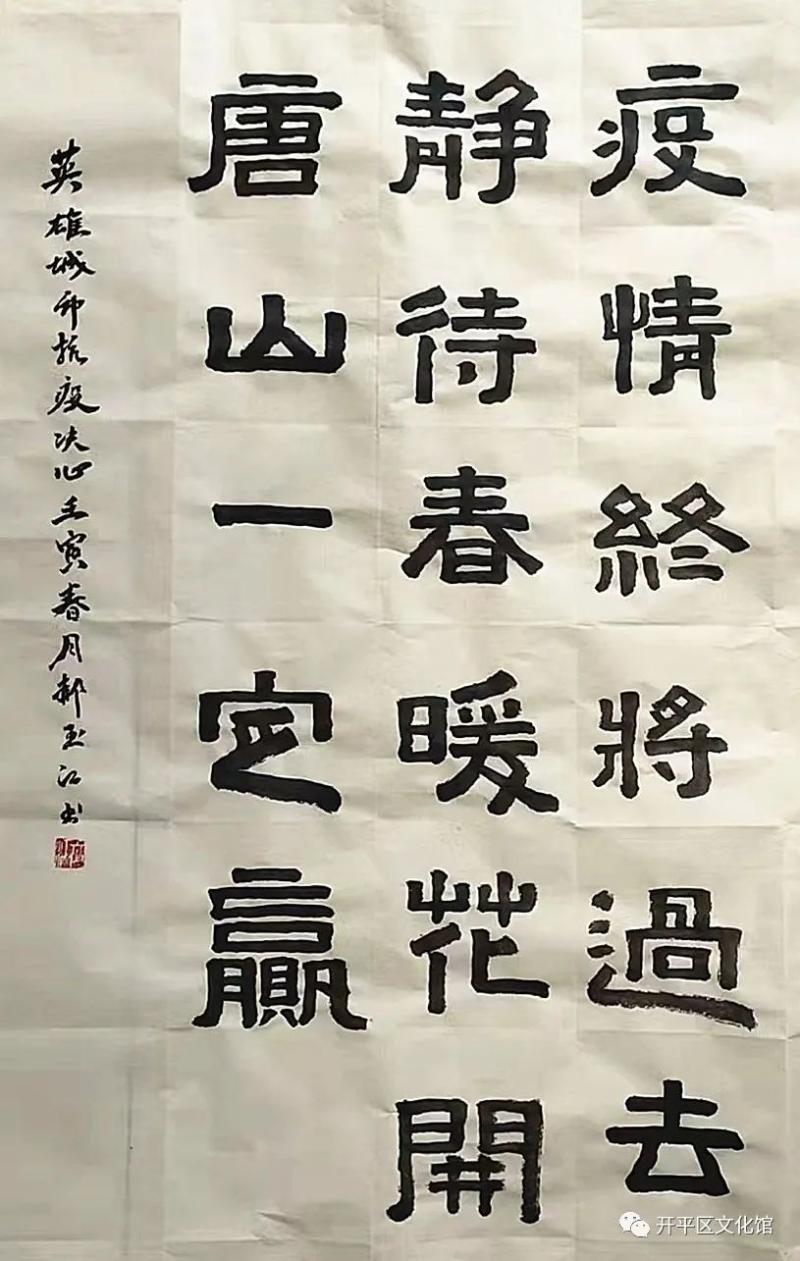 疫情終將過去
靜待春暖花開
唐山一定贏
英雄城市抗疫决心壬寅春月郝玉江书
开平区文化馆